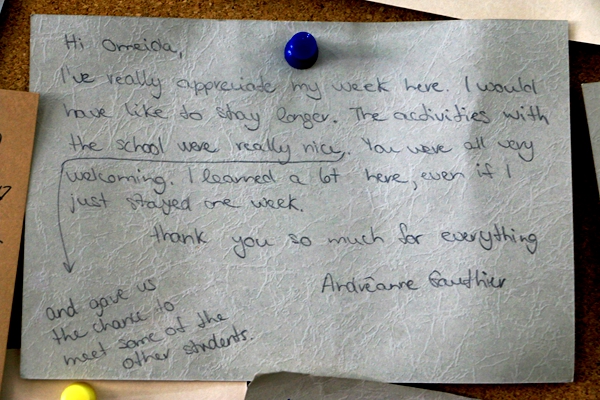 Hi Omeida,
I've really appreciate my week here. I would
have like to stay longer. The activities with
the school were really nice. You were all very
welcoming. I learned a lot here, even if I
just stayed one week.
thank you so much for everything
Andréanne Gauthier
and gave us
the chance to
meet some of the
other students.